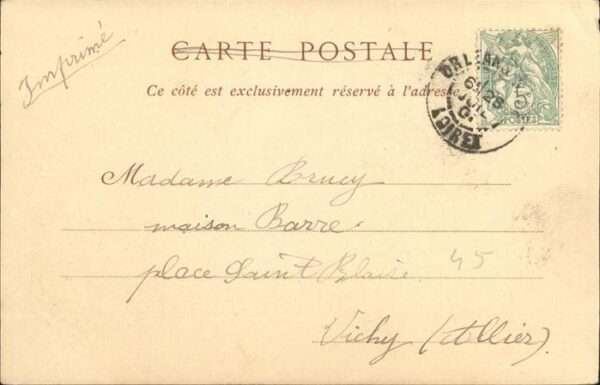 Imprimé
CARTE POSTALE
Ce côté est exclusivement réservé à l'adresse
ORLEANS
6E 26
JUIL
LOIRET
POSTES
Madame Bruey
maison Barre
place Saint Blaise 45
Vichy (Allier).